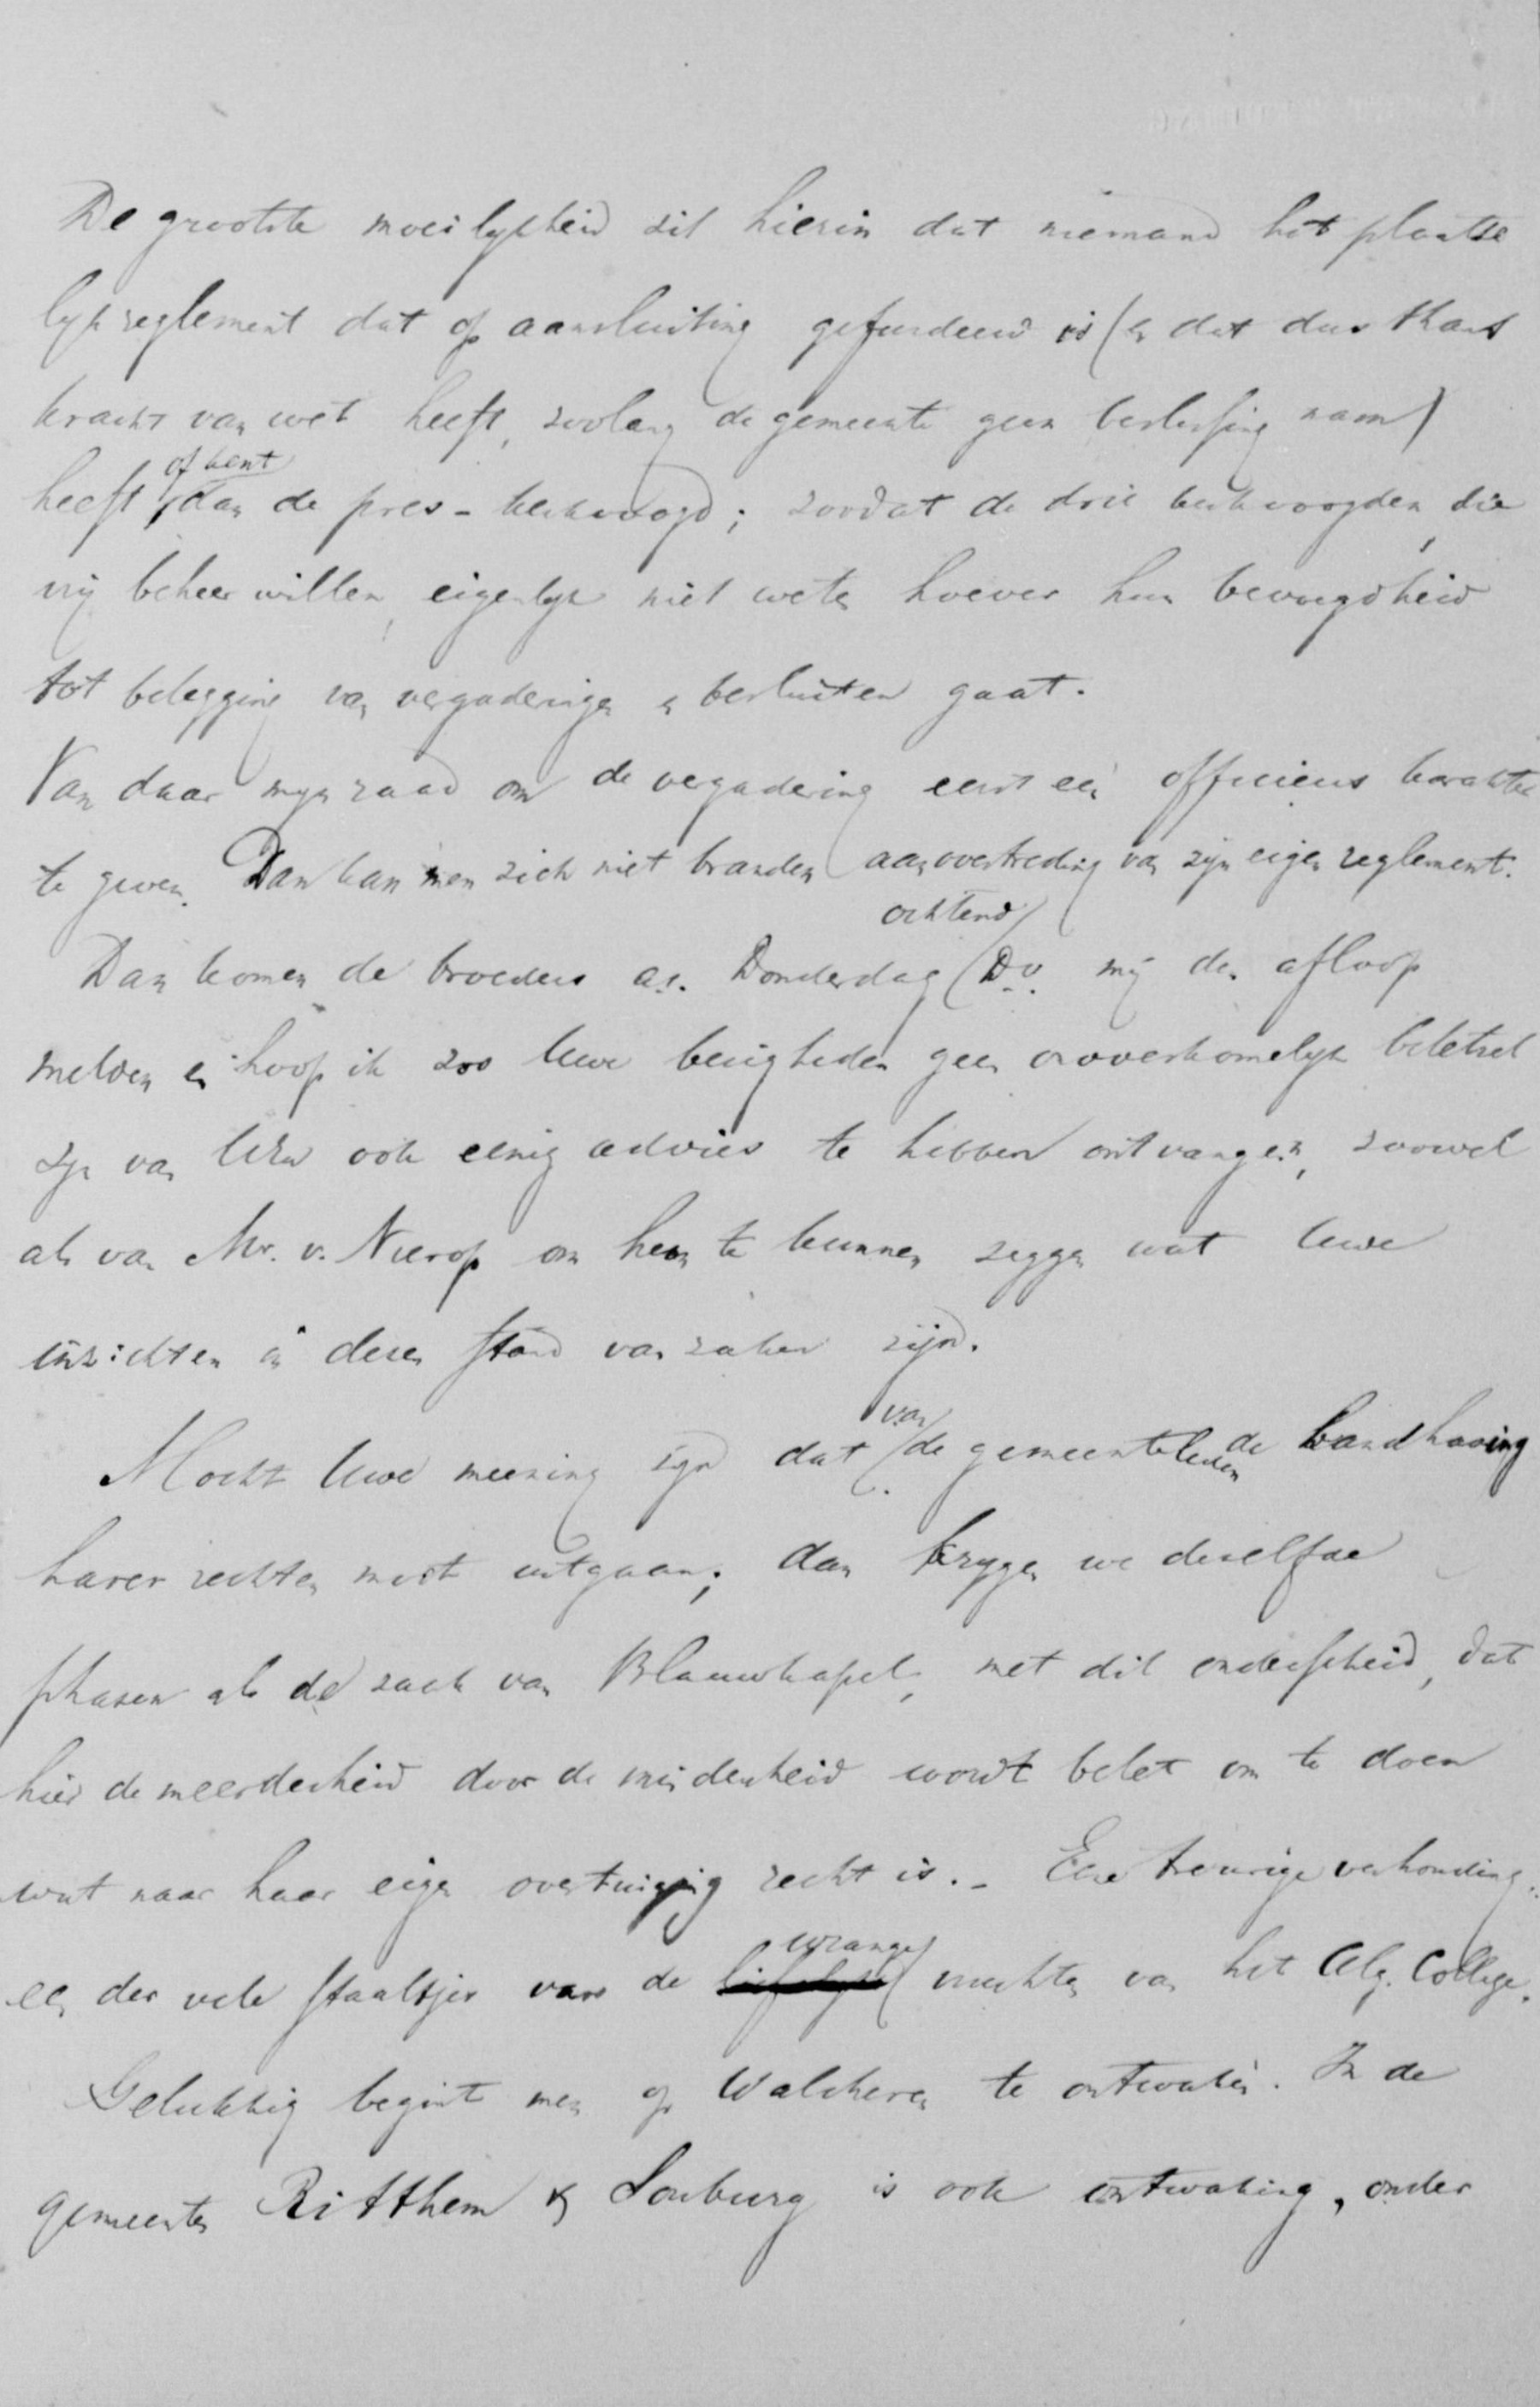 De grootste moeilykheid zit hierin dat niemand het plaatse
lyk reglement dat op aansluiting gefundeerd is (en dat dus thans
kracht van wet heeft, zoolang de gemeente geen beslissing nam)
heeft of kent dan de pres-kerkvoogd; zoodat de drie kerkvoogden, die
vrij beheer willen, eigenlyk niet weten hoever hun bevoegdheid
tot belegging van vergaderingen en besluiten gaat.
Van daar myn raad om de vergadering eerst een officieus karakter
te geven. Dan kan men zich niet branden aan overtreding van zijn eigen reglement.
Dan komen de broeders a.s. Donderdag ochtend D.v. mij den afloop
melden en hoop ik zoo Uwe bezigheden geen onoverkomelyk beletsel
zyn van UEw ook eenig advies te hebben ontvangen, zoowel
als van Mr. v. Nierop om hen te kunnen zeggen wat Uwe
inzichten in dezen stand van zaken zijn.
Mocht Uwe meening zyn dat van de gemeenteleden de handhaving
harer rechten moet uitgaan; dan krygen we dezelfde
phasen als de zaak van Blauwkapel, met dit onderscheid, dat
hier de meerderheid door de minderheid wordt belet om te doen
wat naar haar eigen overtuiging recht is. - Eene treurige verhouding:
een der vele staaltjes van de wrange vruchten van het Alg. College.
Gelukkig begint men op Walcheren te ontwaken. In de
gemeenten Ritthem & Souburg is ook ontwaking, onder